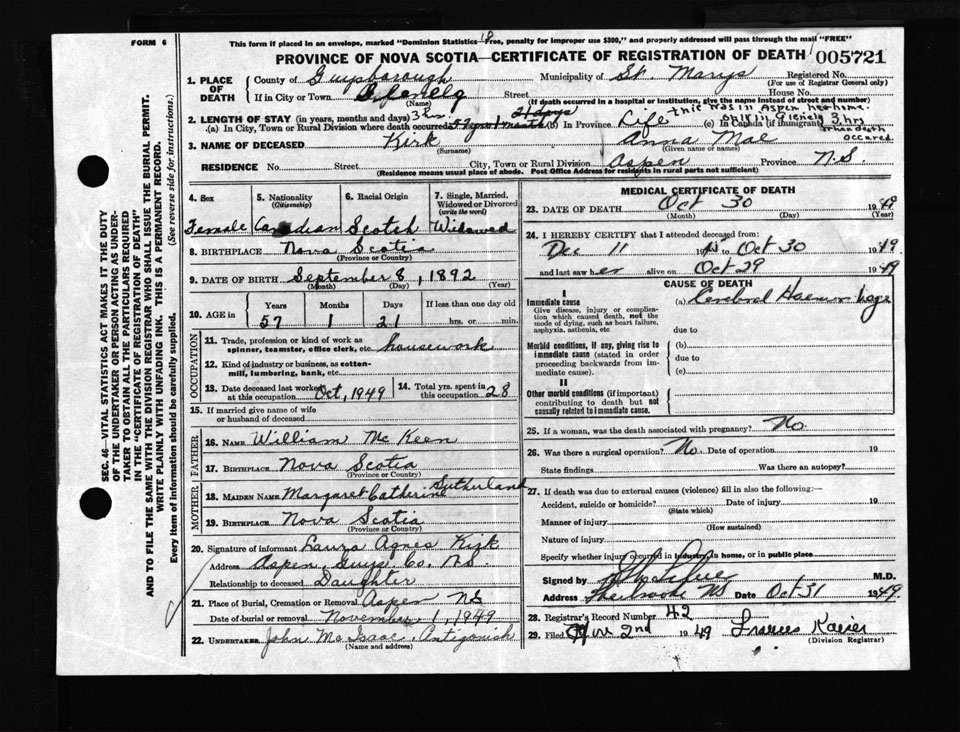 FORM 6
This form if placed in an envelope, marked "Dominion Statistics Free, penalty for improper use $300," and properly addressed will pass through the mail "FREE"
18
PROVINCE OF NOVA SCOTIA—CERTIFICATE OF REGISTRATION OF DEATH
005721
SEC. 46—VITAL STATISTICS ACT MAKES IT THE DUTY
OF THE UNDERTAKER OR PERSON ACTING AS UNDER-
TAKER TO OBTAIN ALL THE PARTICULARS REQUIRED
IN THE "CERTIFICATE OF REGISTRATION OF DEATH"
AND TO FILE THE SAME WITH THE DIVISION REGISTRAR WHO SHALL ISSUE THE BURIAL PERMIT.
WRITE PLAINLY WITH UNFADING INK. THIS IS A PERMANENT RECORD.
Every item of information should be carefully supplied. (See reverse side for instructions.)
1. PLACE OF DEATH
County of Guysborough Municipality of St. Marys Registered No.
(For use of Registrar General only)
If in City or Town Glenelg Street House No.
(Name) (If death occurred in a hospital or institution, give the name instead of street and number.)
2. LENGTH OF STAY (in years, months and days) 3 hrs. 21 days this was in Aspen her home.
(a) In City, Town or Rural Division where death occurred 57 yrs 1 month (b) In Province Life (c) In Canada (if immigrant)
only in Glenelg 3 hrs
when death occured
3. NAME OF DECEASED Kirk Anna Mae
(Surname) (Given name or names)
RESIDENCE No. Street City, Town or Rural Division Aspen Province N.S.
(Residence means usual place of abode. Post Office Address for residents in rural parts not sufficient)
4. Sex Female
5. Nationality (Citizenship) Canadian
6. Racial Origin Scotch
7. Single, Married, Widowed or Divorced (write the word) Widowed
8. BIRTHPLACE Nova Scotia
(Province or Country)
9. DATE OF BIRTH September 8, 1892
(Month) (Day) (Year)
10. AGE IN Years 57 Months 1 Days 21 If less than one day old hrs. or min.
OCCUPATION
11. Trade, profession or kind of work as spinner, teamster, office clerk, etc. housework
12. Kind of industry or business, as cotton-mill, lumbering, bank, etc.
13. Date deceased last worked at this occupation Oct, 1949
14. Total yrs. spent in this occupation 28
15. If married give name of wife or husband of deceased
FATHER
16. NAME William McKeen
17. BIRTHPLACE Nova Scotia
(Province or Country)
MOTHER
18. MAIDEN NAME Margaret Catherine Sutherland
19. BIRTHPLACE Nova Scotia
(Province or Country)
20. Signature of informant Laura Agnes Kirk
Address Aspen, Guys Co. N.S.
Relationship to deceased Daughter
21. Place of Burial, Cremation or Removal Aspen NS
Date of burial or removal November 1, 1949
22. UNDERTAKER John McIsaac, Antigonish
(Name and address)
MEDICAL CERTIFICATE OF DEATH
23. DATE OF DEATH Oct 30 1949
(Month) (Day) (Year)
24. I HEREBY CERTIFY that I attended deceased from:
Dec 11 19 to Oct 30 1949
and last saw her alive on Oct 29 1949
CAUSE OF DEATH
I
Immediate cause
Give disease, injury or complication which caused death, not the mode of dying, such as heart failure, asphyxia, asthenia, etc
(a) Cerebral Haemorrhage
due to
Morbid conditions, if any, giving rise to immediate cause (stated in order proceeding backwards from immediate cause).
(b)
due to
(c)
II
Other morbid conditions (if important) contributing to death but not causally related to immediate cause.
25. If a woman, was the death associated with pregnancy? No.
26. Was there a surgical operation? No. Date of operation 19
State findings Was there an autopsy?
27. If death was due to external causes (violence) fill in also the following:—
Accident, suicide or homicide? Date of injury 19
(State which)
Manner of injury
(How sustained)
Nature of injury
Specify whether injury occurred in industry, in home, or in public place
Signed by M.D.
Address Sherbrooke NS Date Oct 31 1949
28. Registrar's Record Number 42
29. Filed Nov 2nd 1949 Frances
(Division Registrar)